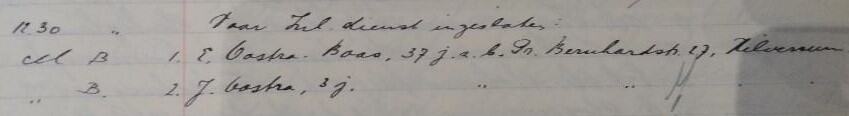 12.30 " Door Inl. dienst ingesloten:
M B 1. E. Oostra-Boas, 37 j. a. b. Pr. Bernhardstr. 27, Hilversum
" B. 2. J. Oostra, 3 j. " "